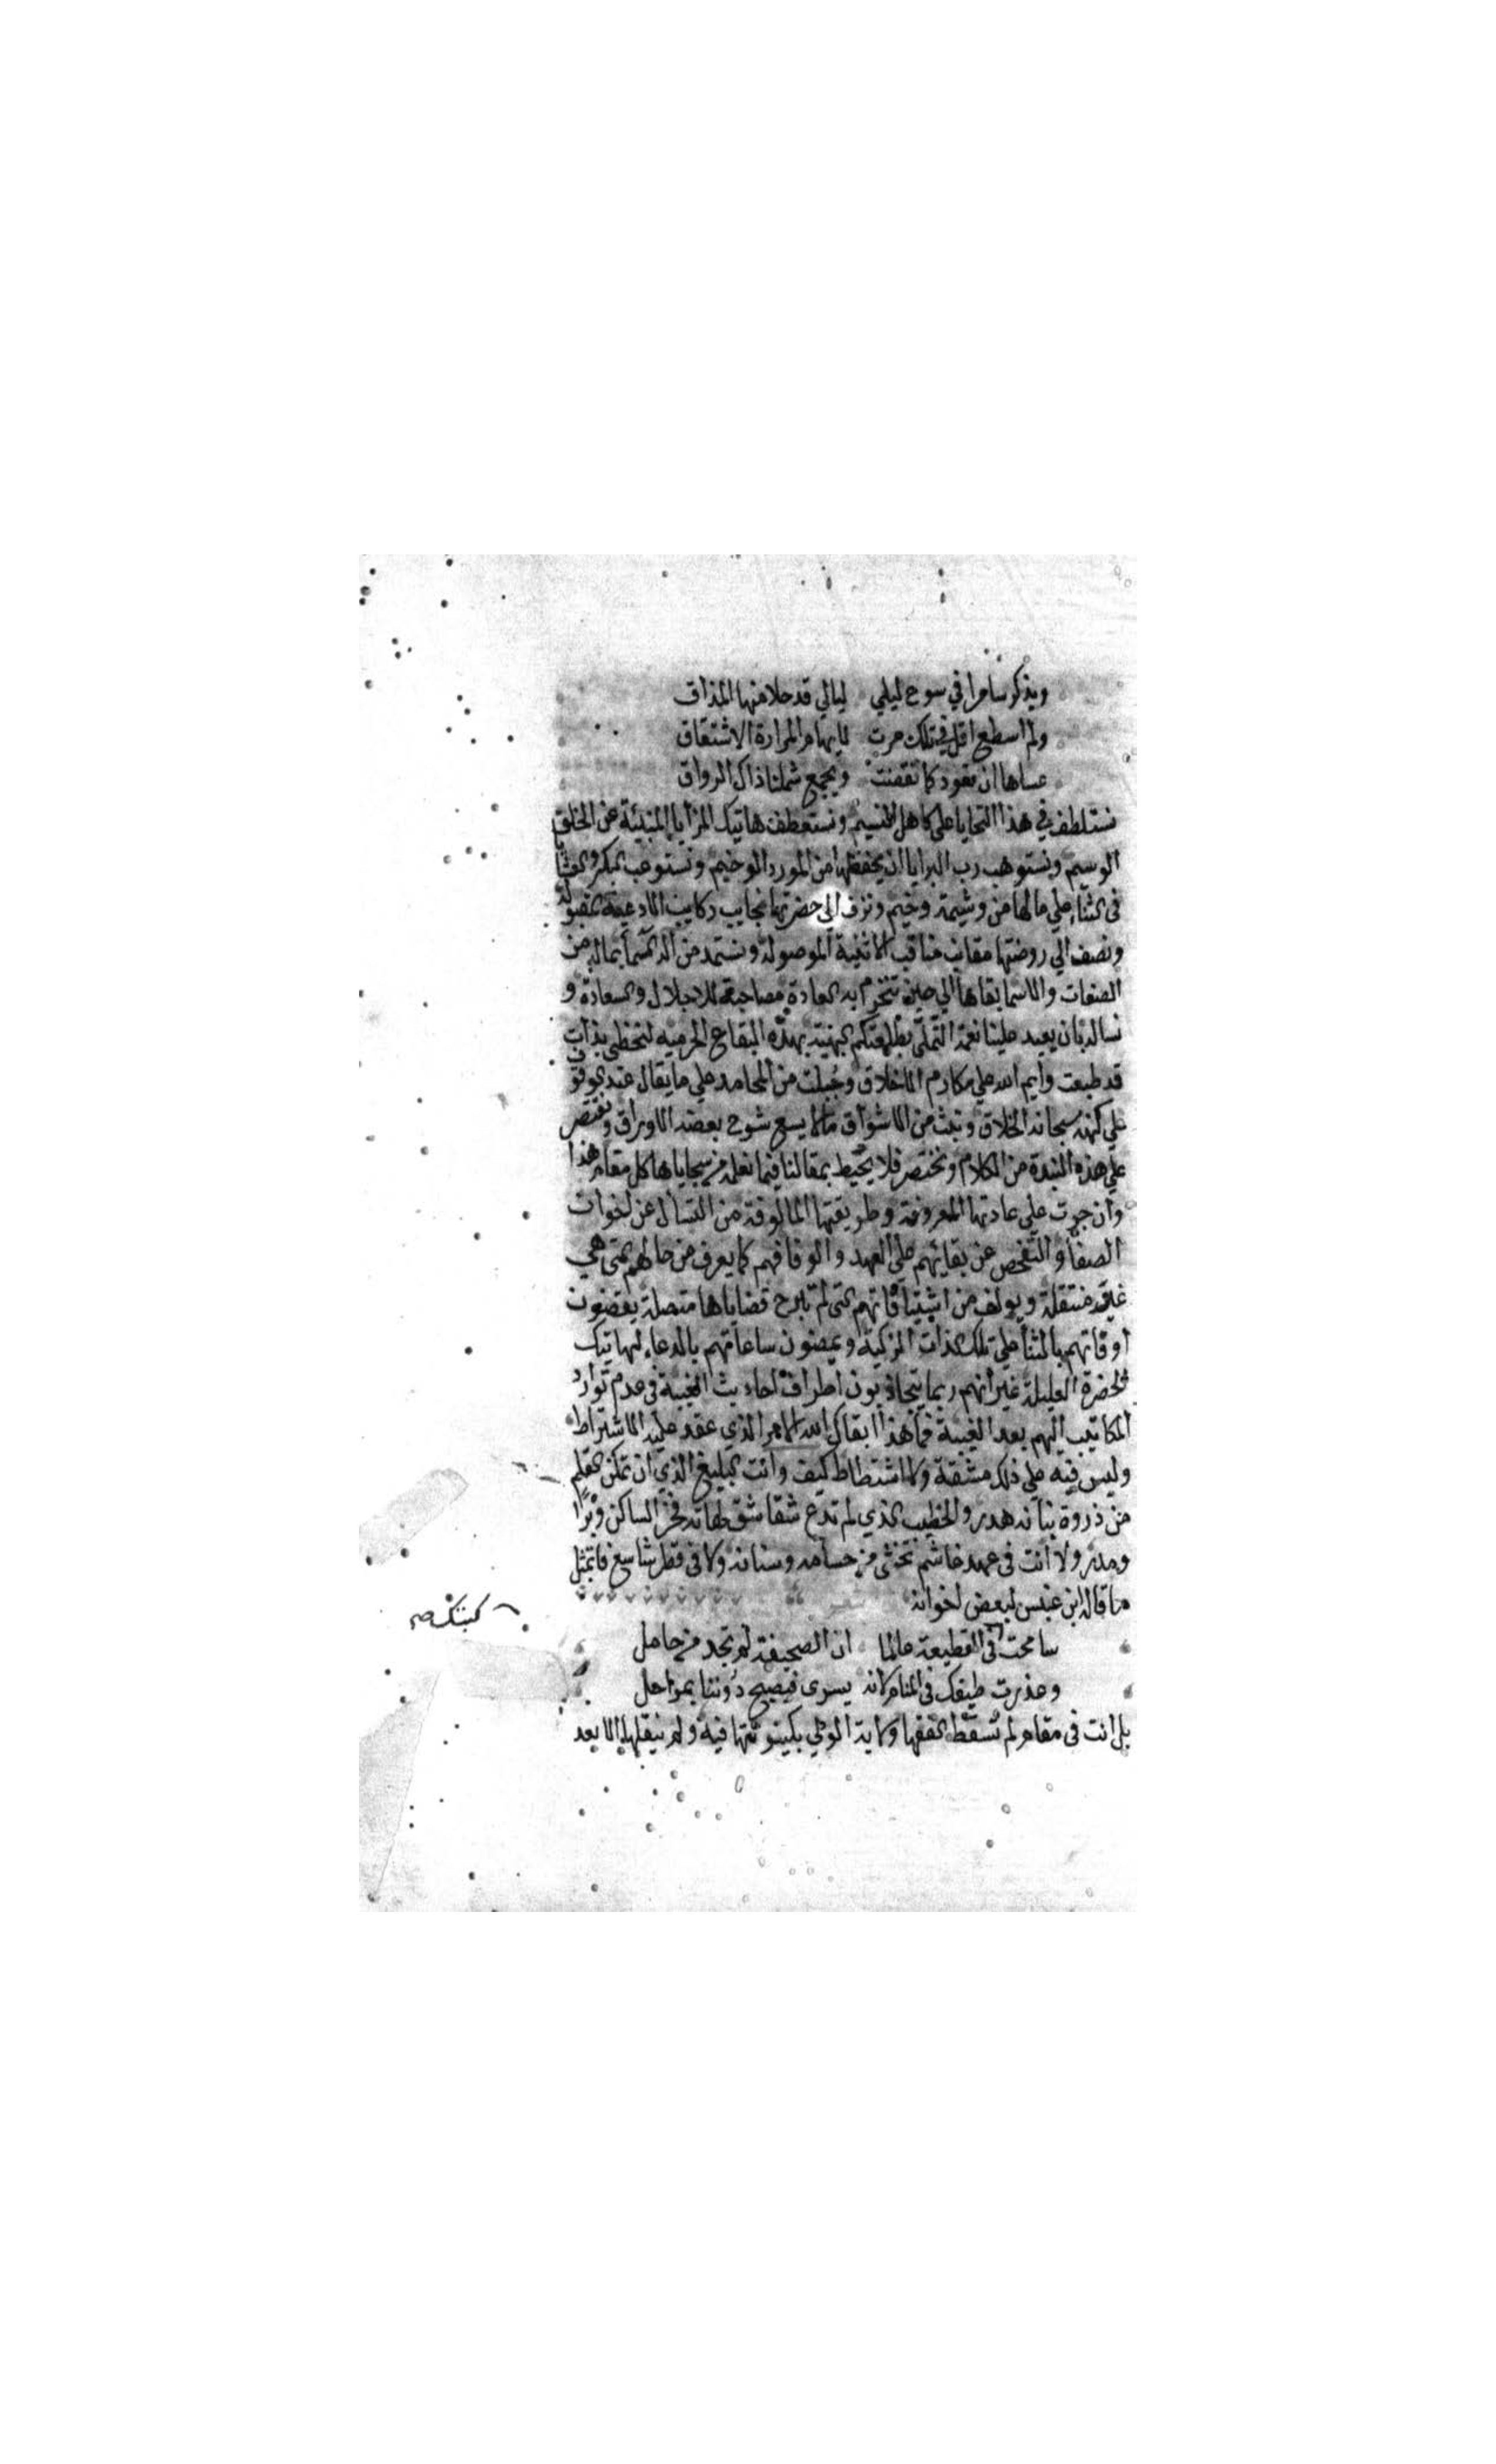 ويذكر سامرا في سوح ليلي ليالي قد حلا منها المذاق
ولم اسطع اقل في تلك مرت لايهام المرارة الاشتقاق
عساها ان تعود كما تقضت ويجمع شملنا ذاك الرواق
نستلطف في هذا التحايا علي كاهل النسيم ونستعطف هاتيك المزايا المنبئة عن الخلق
الوسيم ونستوهب رب البرايا ان يحفظها من المورد الوخيم ونستوعب البكر والعشايا
في الثناء علي مالها من وشيمة وخيم ونزف الي حضرتها نجايب ركايب الادعية المقبولة
ونصف الي روضتها مناقب الاثنية الموصولة ونستمد من اله السما بماله من
الصفات والاسما بقاها الي حين تنخرم به العادة مصاحبة للاجلال والسعادة و
نساله بان يعيد علينا نعمة التملي بطلعتكم البهية بهذه البقاع الحرمية لنحظي بذات
قد طبعت وايم الله علي مكارم الاخلاق وجبلت من المحامد علي ما يقال عند الوقوف
علي كنهه سبحانه الخلاق ونبث من الاشواق مالا يسع شرح بعضه الاوراق ونقتصر
علي هذه النبذة من الكلام ونختصر فلا يحيط بمقالنا فيما نعلمه من سجاياها كل مقام هذا
وان جرت علي عادتها المعروفة وطريقتها المالوفة من التسأل عن اخوان
الصفا والتفحص عن بقايهم علي العهد والوفا فهم كما يعرف من حالهم التي هي
غير منتقلة ويولف من اشتياقاتهم التي لم تبرح قضاياها متصلة يقضون
اوقاتهم بالثنا علي تلك الذات الزكية ويمضون ساعاتهم بالدعاء لهاتيك
الحضرة العلية غير انهم ربما يتجاذبون اطراف احاديث الغيبة في عدم توارد
المكاتيب اليهم بعد الغيبة فما هذا ابقاك الله الامر الذي عقد عليه الاشتراط
وليس فيه علي ذلك مشقة ولا اشتطاط كيف وانت البليغ الذي ان تمكن القلم
من ذروة بنانه هدر والخطيب الذي لم تدع شقاشق لهاته فخرا لساكن وبرا
ومدر ولا انت في عهد غاشم تخشى من حسامه وسنانه ولا في قطر شاسع فاتمثل
ما قاله ابن عنين لبعض اخوانه شعر
سامحت في القطيعة عالما ان الصحيفة لم تجد من حامل
وعذرت طيفك في المنام لانه يسرى فيصبح دوننا بمراحل
بل انت في مقام لم تسقط الفقها ولاية الولي بكينونتها فيه ولم ينقلها الا بعد